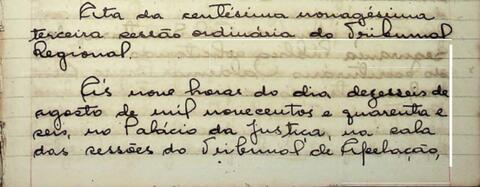 Ata da centésima nonagésima
terceira sessão ordinária do Tribunal
Regional.
Ás nove horas do dia dezesseis de
agosto de mil novecentos e quarenta e
seis, no Palácio da Justiça, na sala
das sessões do Tribunal de Apelação,